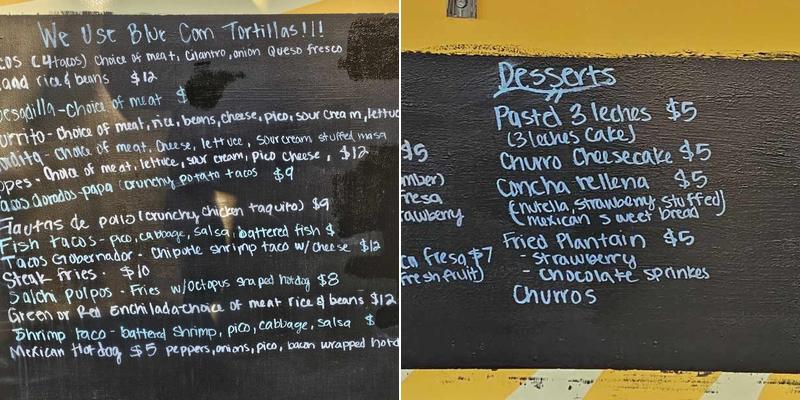 We Use Blue Corn Tortillas!!!
cos (4tacos) choice of meat, cilantro, onion Queso fresco
and rice & beans $12
esadilla - Choice of meat $
urrito - Choice of meat, rice, beans, cheese, pico, sour cream, lettuc
ordita - Choice of meat, cheese, lettuce, sour cream stuffed masa
opes - Choice of meat, lettuce, sour cream, pico cheese, $12
acos dorados - papa crunchy potato tacos $9
Flautas de pollo (crunchy chicken taquito) $9
Fish tacos - pico, cabbage, salsa, battered fish $
Tacos Gobernador - Chipotle shrimp taco w/ cheese $12
Steak fries - $10
Salchi pulpos - Fries w/ octopus shaped hotdog $8
Green or Red Enchilada - choice of meat rice & beans $12
Shrimp taco - battered shrimp, pico, cabbage, salsa $
Mexican Hotdog $5 peppers, onions, pico, bacon wrapped hotd
$5
mber)
resa
rawberry
ca fresa $7
fresh fruit)
Desserts
Pastel 3 leches $5
(3 leches cake)
Churro Cheesecake $5
Concha rellena $5
(nutella, strawberry, stuffed)
(mexican sweet bread)
Fried Plantain $5
- strawberry
- chocolate sprinkes
Churros